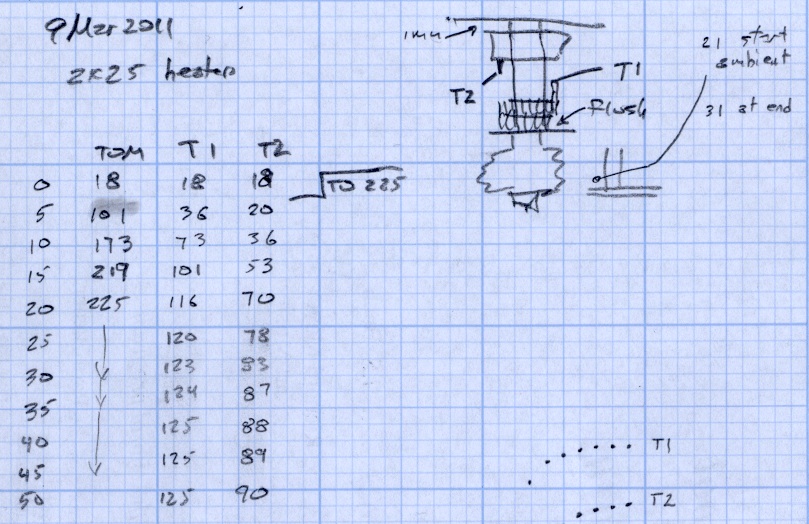 9 Mar 2011
2x25 heaters
1mm
T1
T2
Flush
21 start
ambient
31 at end
TOM T1 T2
0 18 18 18 TO 225
5 101 36 20
10 173 73 36
15 219 101 53
20 225 116 70
25 120 78
30 123 83
35 124 87
40 125 88
45 125 89
50 125 90
T1
T2